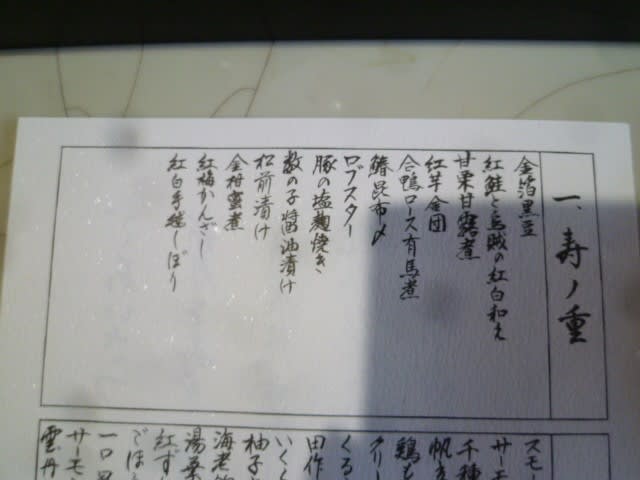 一、寿ノ重
金箔黒豆
紅鮭と烏賊の紅白和え
甘栗甘露煮
紅芋金団
合鴨ロース有馬煮
鰆昆布〆
ロブスター
豚の塩麹焼き
数の子醤油漬け
松前漬け
金柑蜜煮
紅梅かんざし
紅白手綱しぼり
スモー
サーモ
千種
帆立
鶏も
クリー
くる
田作
いくら
柚子
海老
湯葉
紅ず
ごぼう
一口
サーモン
雲丹